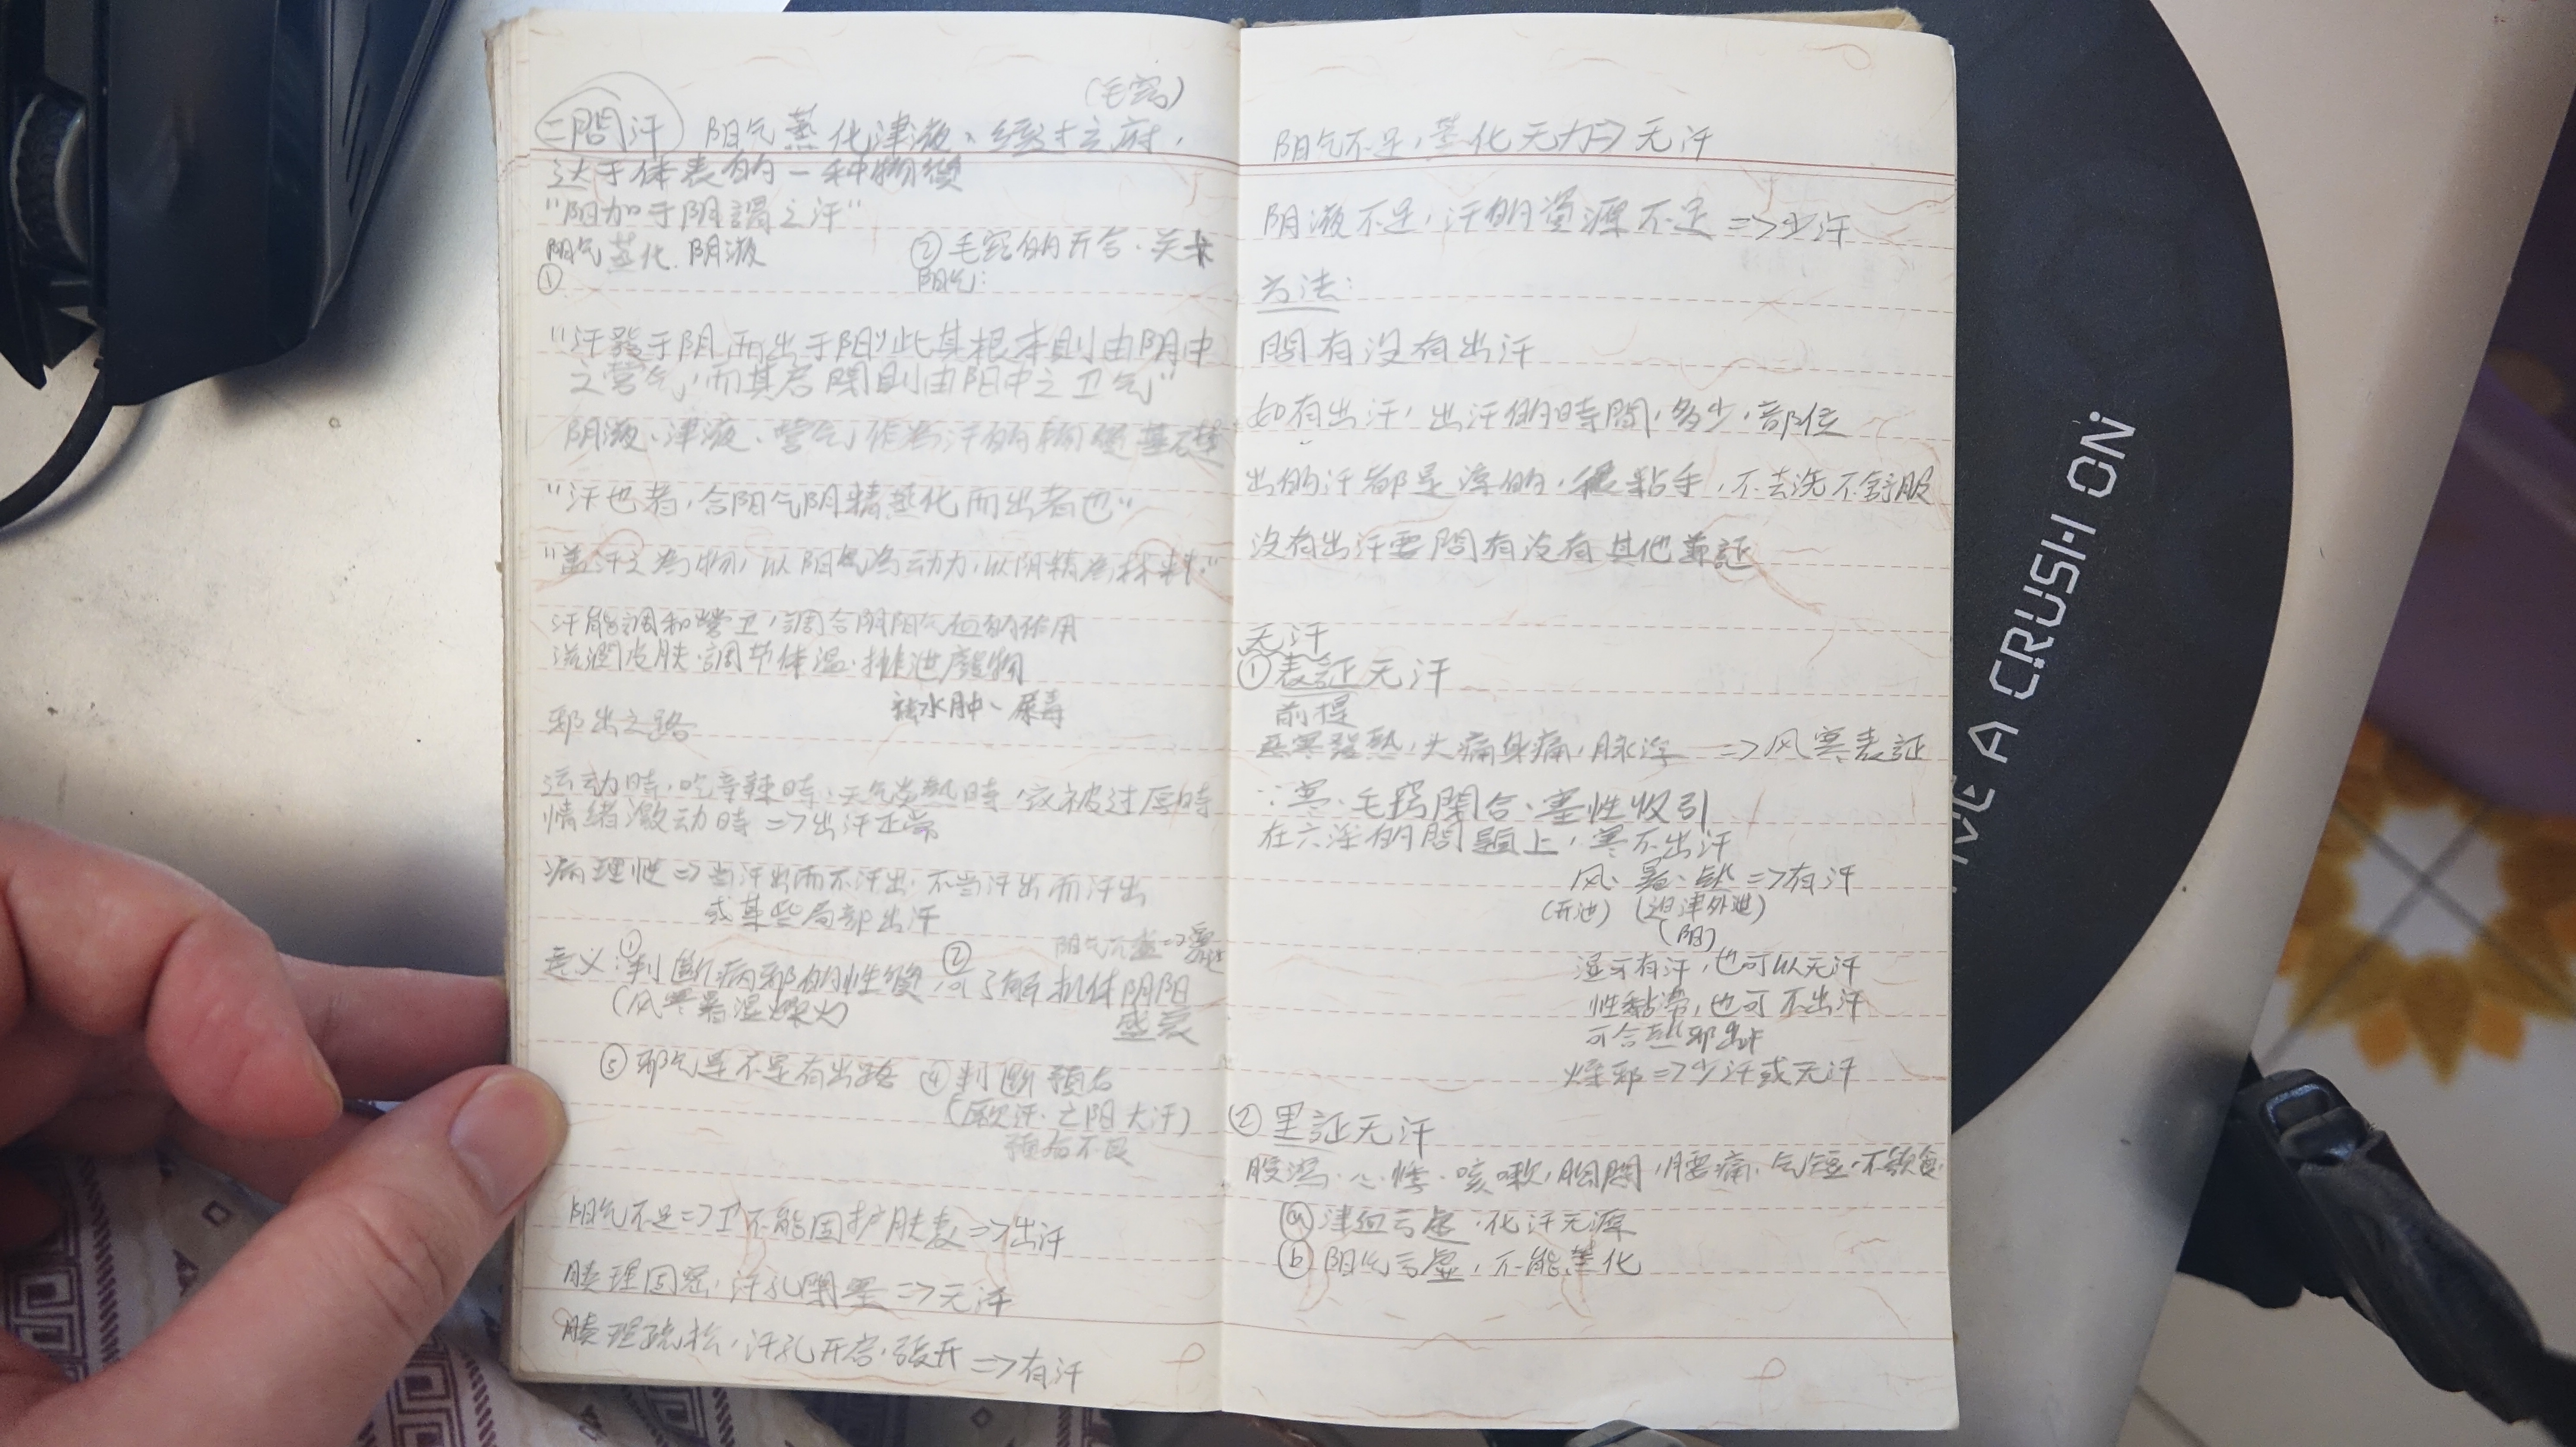 (毛窍)
二問汗 阳气蒸化津液、经汗之府,
达于体表的一种物質
"阳加于阴謂之汗"
阳气蒸化 阴液 ②毛窍的开合·关卡
① 阳气:
"汗發于阴而出于阳"此其根本則由阴中
之营气,而其启閉則由阳中之卫气"
阴液、津液、营气作為汗的物質基礎
"汗也者,合阳气阴精蒸化而出者也"
"盖汗之為物,以阳气為动力,以阴精為材料"
汗能調和營卫,調合阴阳气血的作用
滋潤皮肤·調节体温·排泄廢物
水肿、尿毒
邪出之路
运动時,吃辛辣時,天气炎熱時,衣被过厚時
情緒激动時=>出汗正常
病理性=>当汗出而不汗出,不当汗出而汗出
或某些局部出汗
阳气不
意义:①判断病邪的性質,②可了解机体阴阳
(风寒暑湿燥火) 盛衰
③邪气是不是有出路 ④判断預后
(汗·亡阳大汗)
預后不良
阳气不足=>卫不能固护肤表=>出汗
腠理固密,汗孔閉塞=>无汗
腠理疏松,汗孔开启·張开=>有汗
阳气不足,蒸化无力=>无汗
阴液不足,汗的資源不足=>少汗
方法:
問有没有出汗
如有出汗,出汗的時間,多少,部位
出的汗都是的,很黏手,不去洗不舒服
沒有出汗要問有沒有其他兼証
无汗
①表証无汗
前提
恶寒發熱,头痛身痛,脉浮 =>风寒表証
∵寒·毛窍閉合·寒性收引
在六淫的問題上,寒不出汗
风·暑·熱=>有汗
(开泄) (迫津外泄)
(阳)
湿可有汗,也可以无汗
性黏滞,也可不出汗
可合熱邪出汗
燥邪=>少汗或无汗
②里証无汗
腹瀉·心悸·咳嗽,胸悶,腰痛,气短·不欲食
ⓐ津血亏虚·化汗无源
ⓑ阳气亏虚,不能蒸化
A CRUSH ON